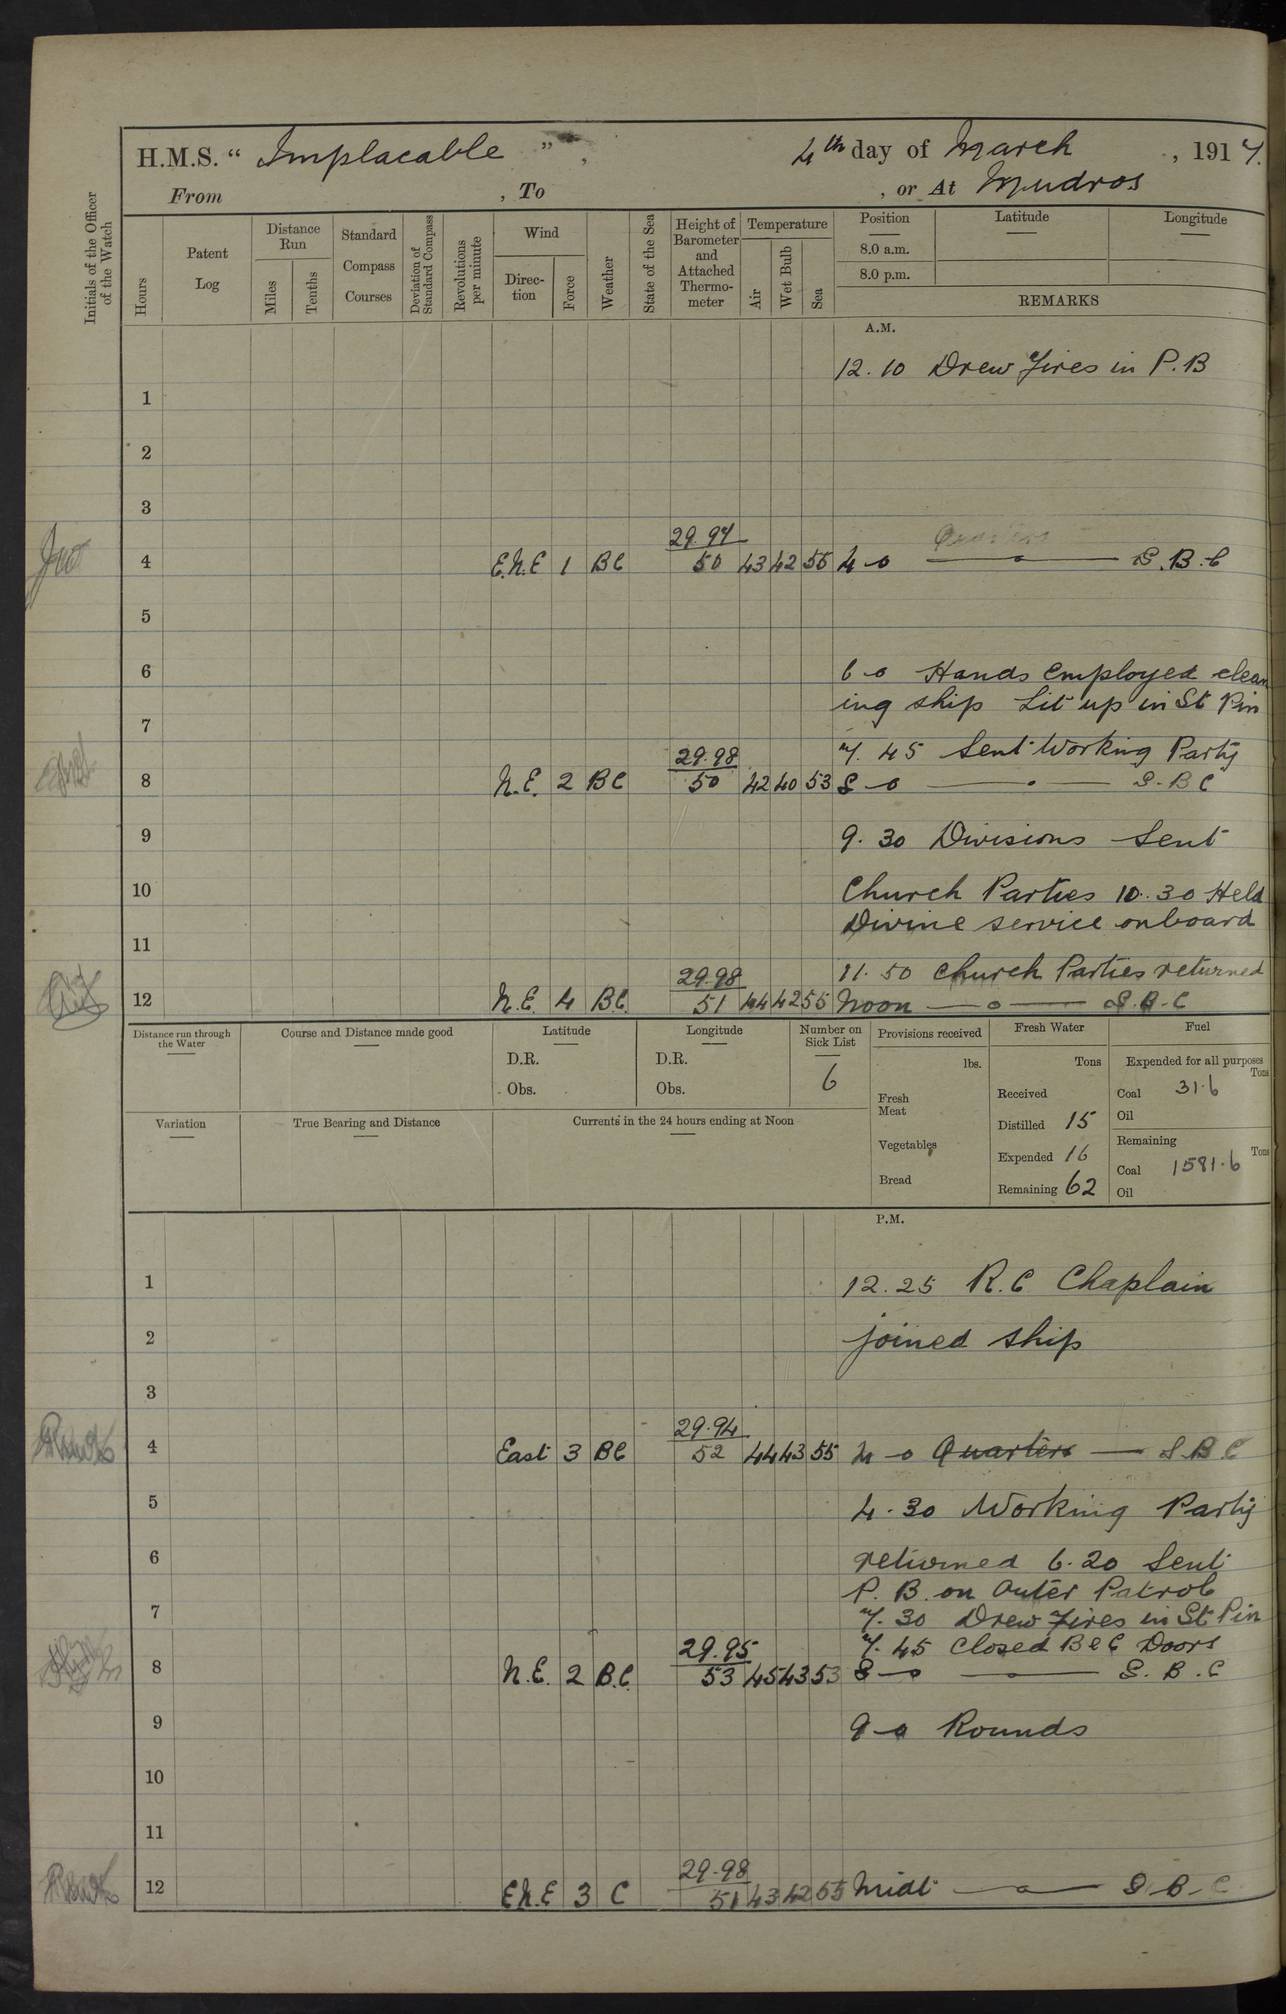 H.M.S. “ Implacable ” , 4th day of March , 1917.
From , To , or At Mudros
Initials of the Officer of the Watch
Hours
Patent Log
Distance Run
Miles
Tenths
Standard Compass Courses
Deviation of Standard Compass
Revolutions per minute
Wind
Direc-tion
Force
Weather
State of the Sea
Height of Barometer and Attached Thermo-meter
Temperature
Air
Wet Bulb
Sea
Position
8.0 a.m.
8.0 p.m.
Latitude
Longitude
REMARKS
A.M.
12.10 Drew Fires in P.B
1
2
3
29.97
4 E.N.E 1 BC 50 43 42 55 4-0 S.B.C
5
6 6-0 Hands employed clean
ing ship Lit up in St Pin
7
7.45 Sent Working Party
29.98
8 N.E. 2 BC 50 42 40 53 8-0 S.B.C
9 9.30 Divisions Sent
10 Church Parties 10.30 Held
Divine service onboard
11
11.50 Church Parties returned
29.98
12 N.E. 4 BC 51 44 42 55 Noon S.B.C
Distance run through the Water
Course and Distance made good
Latitude
D.R.
Obs.
Longitude
D.R.
Obs.
Number on Sick List
6
Provisions received
lbs.
Fresh Meat
Vegetables
Bread
Fresh Water
Tons
Received
Distilled 15
Expended 16
Remaining 62
Fuel
Expended for all purposes
Tons
Coal 31.6
Oil
Remaining
Tons
Coal 1581.6
Oil
Variation
True Bearing and Distance
Currents in the 24 hours ending at Noon
P.M.
1 12.25 R.C Chaplain
2 joined ship
3
29.94
4 East 3 BC 52 44 43 55 4-0 Quarters S.B.C
5 4.30 Working Party
6 returned 6.20 Sent
P.B. on Outer Patrol
7 7.30 Drew Fires in St Pin
7.45 Closed B & C Doors
29.95
8 N.E. 2 B.C. 53 45 43 53 8-0 S.B.C
9 9-0 Rounds
10
11
29.98
12 ENE 3 C 51 43 42 55 Midt S.B.C